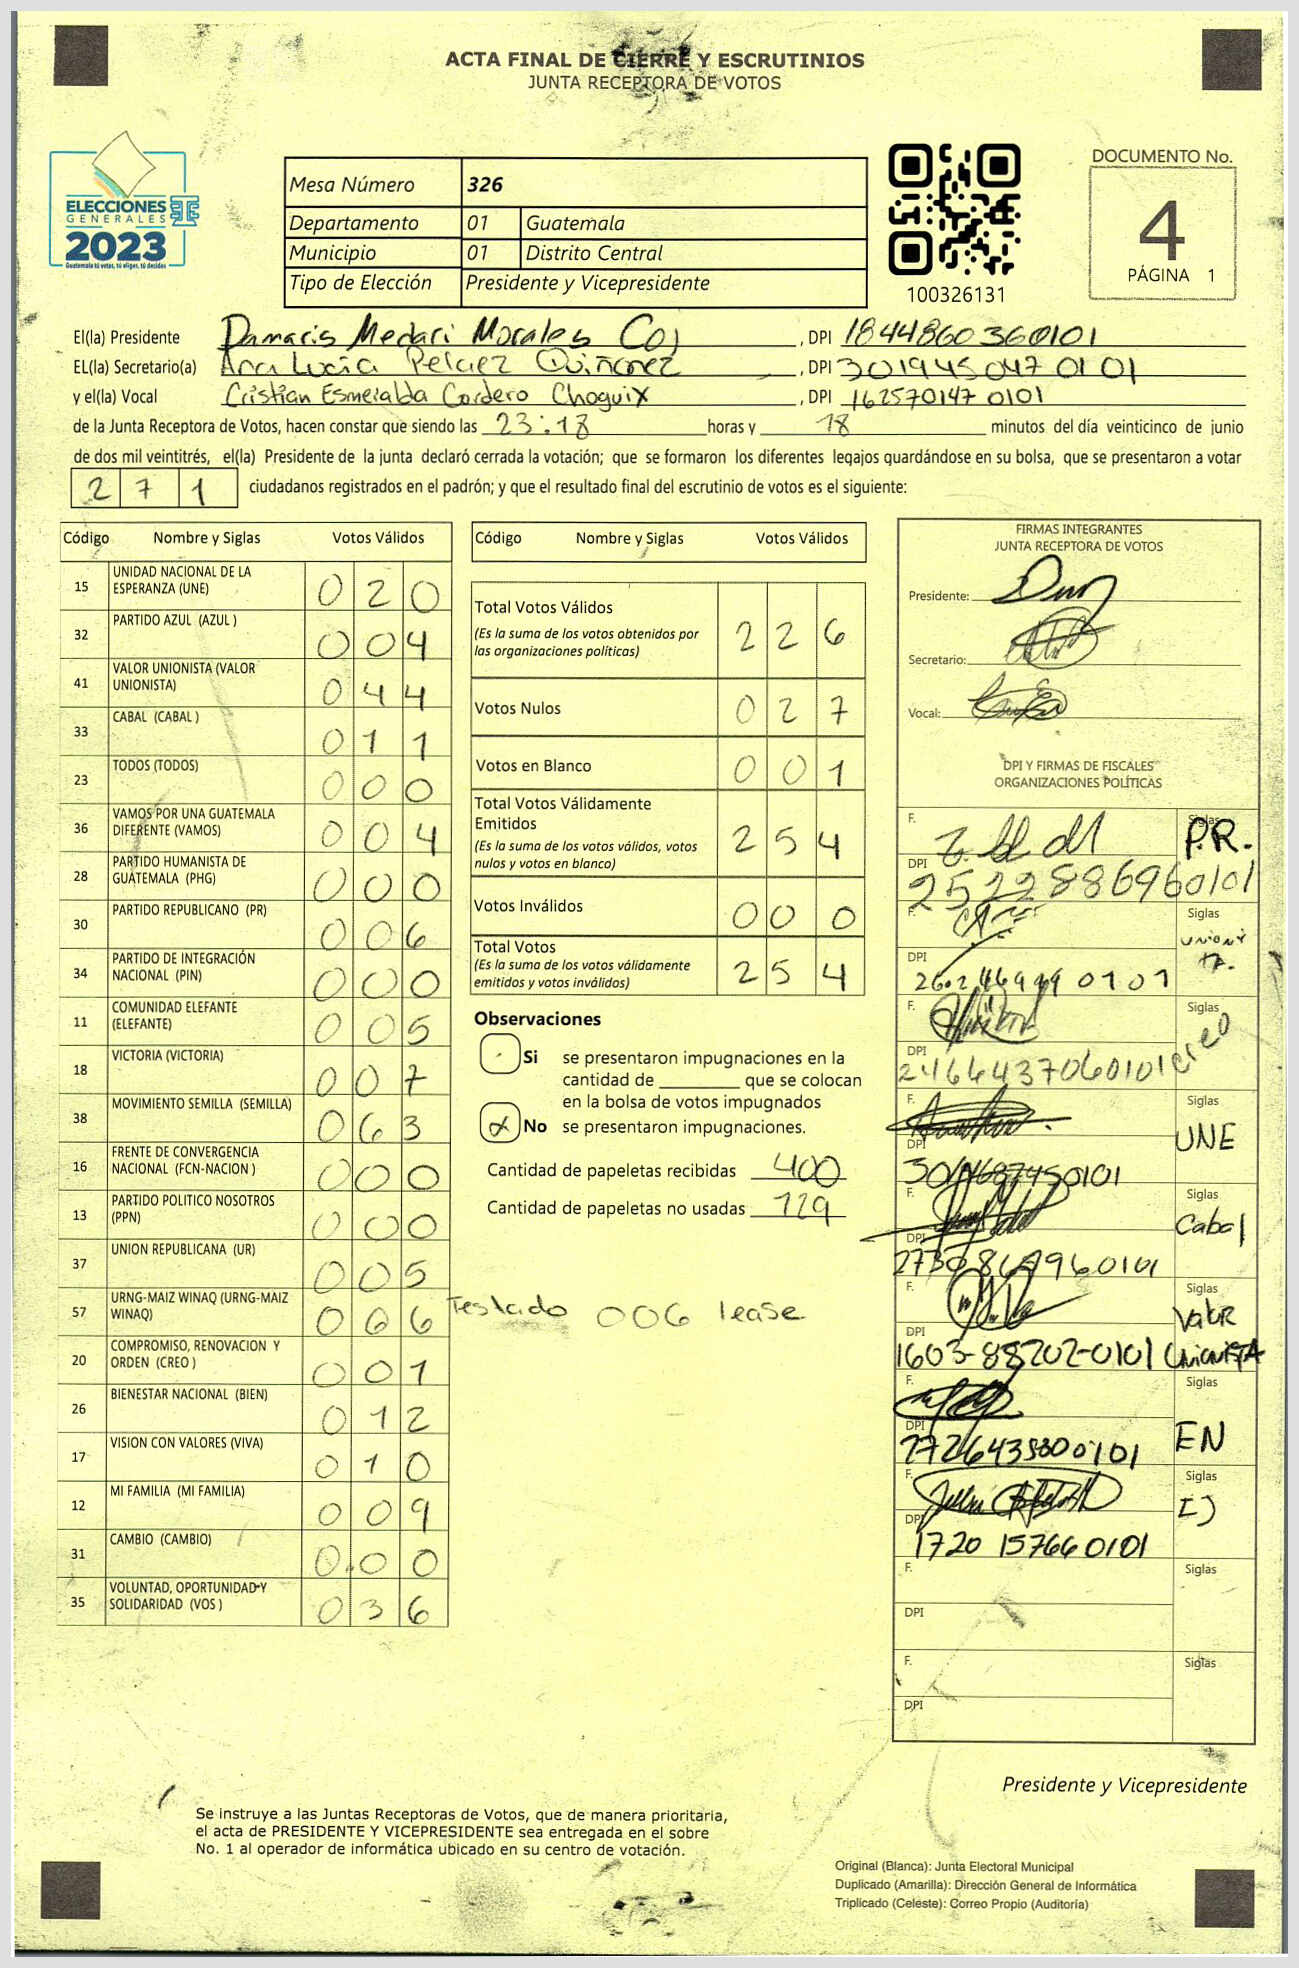 ACTA FINAL DE CIERRE Y ESCRUTINIOS
JUNTA RECEPTORA DE VOTOS
ELECCIONES
GENERALES
2023
Guatemala tú votas, tú eliges, tú decides
Mesa Número 326
Departamento 01 Guatemala
Municipio 01 Distrito Central
Tipo de Elección Presidente y Vicepresidente
100326131
DOCUMENTO No.
4
PÁGINA 1
El(la) Presidente Damaris Medari Morales Coj, DPI 1844860360101
EL(la) Secretario(a) Ana Lucía Pelaez Quiñonez, DPI 3019450470101
y el(la) Vocal Cristian Esmeralda Cordero Choguix, DPI 1625701470101
de la Junta Receptora de Votos, hacen constar que siendo las 23:18 horas y 18 minutos del día veinticinco de junio
de dos mil veintitrés, el(la) Presidente de la junta declaró cerrada la votación; que se formaron los diferentes legajos guardándose en su bolsa, que se presentaron a votar
271 ciudadanos registrados en el padrón; y que el resultado final del escrutinio de votos es el siguiente:
Código Nombre y Siglas Votos Válidos
15 UNIDAD NACIONAL DE LA ESPERANZA (UNE) 020
32 PARTIDO AZUL (AZUL ) 004
41 VALOR UNIONISTA (VALOR UNIONISTA) 044
33 CABAL (CABAL ) 011
23 TODOS (TODOS) 000
36 VAMOS POR UNA GUATEMALA DIFERENTE (VAMOS) 004
28 PARTIDO HUMANISTA DE GUATEMALA (PHG) 000
30 PARTIDO REPUBLICANO (PR) 006
34 PARTIDO DE INTEGRACIÓN NACIONAL (PIN) 000
11 COMUNIDAD ELEFANTE (ELEFANTE) 005
18 VICTORIA (VICTORIA) 007
38 MOVIMIENTO SEMILLA (SEMILLA) 063
16 FRENTE DE CONVERGENCIA NACIONAL (FCN-NACION ) 000
13 PARTIDO POLITICO NOSOTROS (PPN) 000
37 UNION REPUBLICANA (UR) 005
57 URNG-MAIZ WINAQ (URNG-MAIZ WINAQ) 006 Testado 006 lease
20 COMPROMISO, RENOVACION Y ORDEN (CREO ) 001
26 BIENESTAR NACIONAL (BIEN) 012
17 VISION CON VALORES (VIVA) 010
12 MI FAMILIA (MI FAMILIA) 009
31 CAMBIO (CAMBIO) 000
35 VOLUNTAD, OPORTUNIDAD Y SOLIDARIDAD (VOS ) 036
Código Nombre y Siglas Votos Válidos
Total Votos Válidos 226
(Es la suma de los votos obtenidos por
las organizaciones políticas)
Votos Nulos 027
Votos en Blanco 001
Total Votos Válidamente
Emitidos 254
(Es la suma de los votos válidos, votos
nulos y votos en blanco)
Votos Inválidos 000
Total Votos 254
(Es la suma de los votos válidamente
emitidos y votos inválidos)
Observaciones
Si se presentaron impugnaciones en la
cantidad de ________ que se colocan
en la bolsa de votos impugnados
x No se presentaron impugnaciones.
Cantidad de papeletas recibidas 400
Cantidad de papeletas no usadas 129
FIRMAS INTEGRANTES
JUNTA RECEPTORA DE VOTOS
Presidente:
Secretario:
Vocal:
DPI Y FIRMAS DE FISCALES
ORGANIZACIONES POLÍTICAS
F. Siglas P.R.
DPI 2522886960101
F. Siglas
DPI
F. Siglas creo
DPI 2466437060101
F. Siglas UNE
DPI
F. Siglas Cabal
DPI
F. Siglas Valor Unionista
DPI 1603-88202-0101
F. Siglas EN
DPI
F. Siglas
DPI 1720 157660101
F. Siglas
DPI
F. Siglas
DPI
Presidente y Vicepresidente
Se instruye a las Juntas Receptoras de Votos, que de manera prioritaria,
el acta de PRESIDENTE Y VICEPRESIDENTE sea entregada en el sobre
No. 1 al operador de informática ubicado en su centro de votación.
Original (Blanca): Junta Electoral Municipal
Duplicado (Amarilla): Dirección General de Informática
Triplicado (Celeste): Correo Propio (Auditoría)